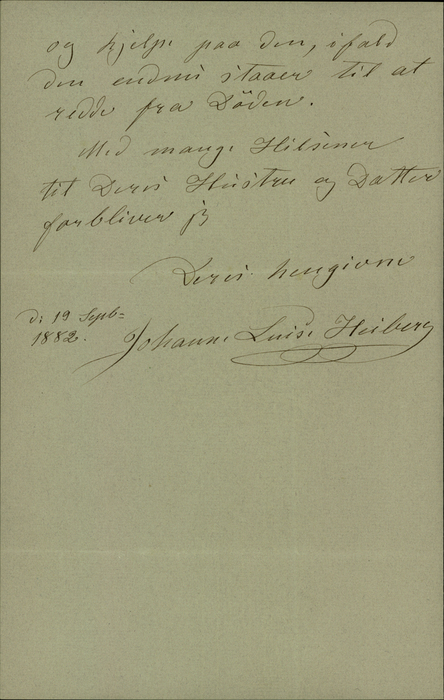 og hjelpe paa den, ifald
den endnu staaer til at
redde fra Döden.
Med mange Hilsener
til Deres Hustru og Datter
forbliver jeg
Deres hengivne
D: 19 Septb=
1882.
Johanne Luise Heiberg